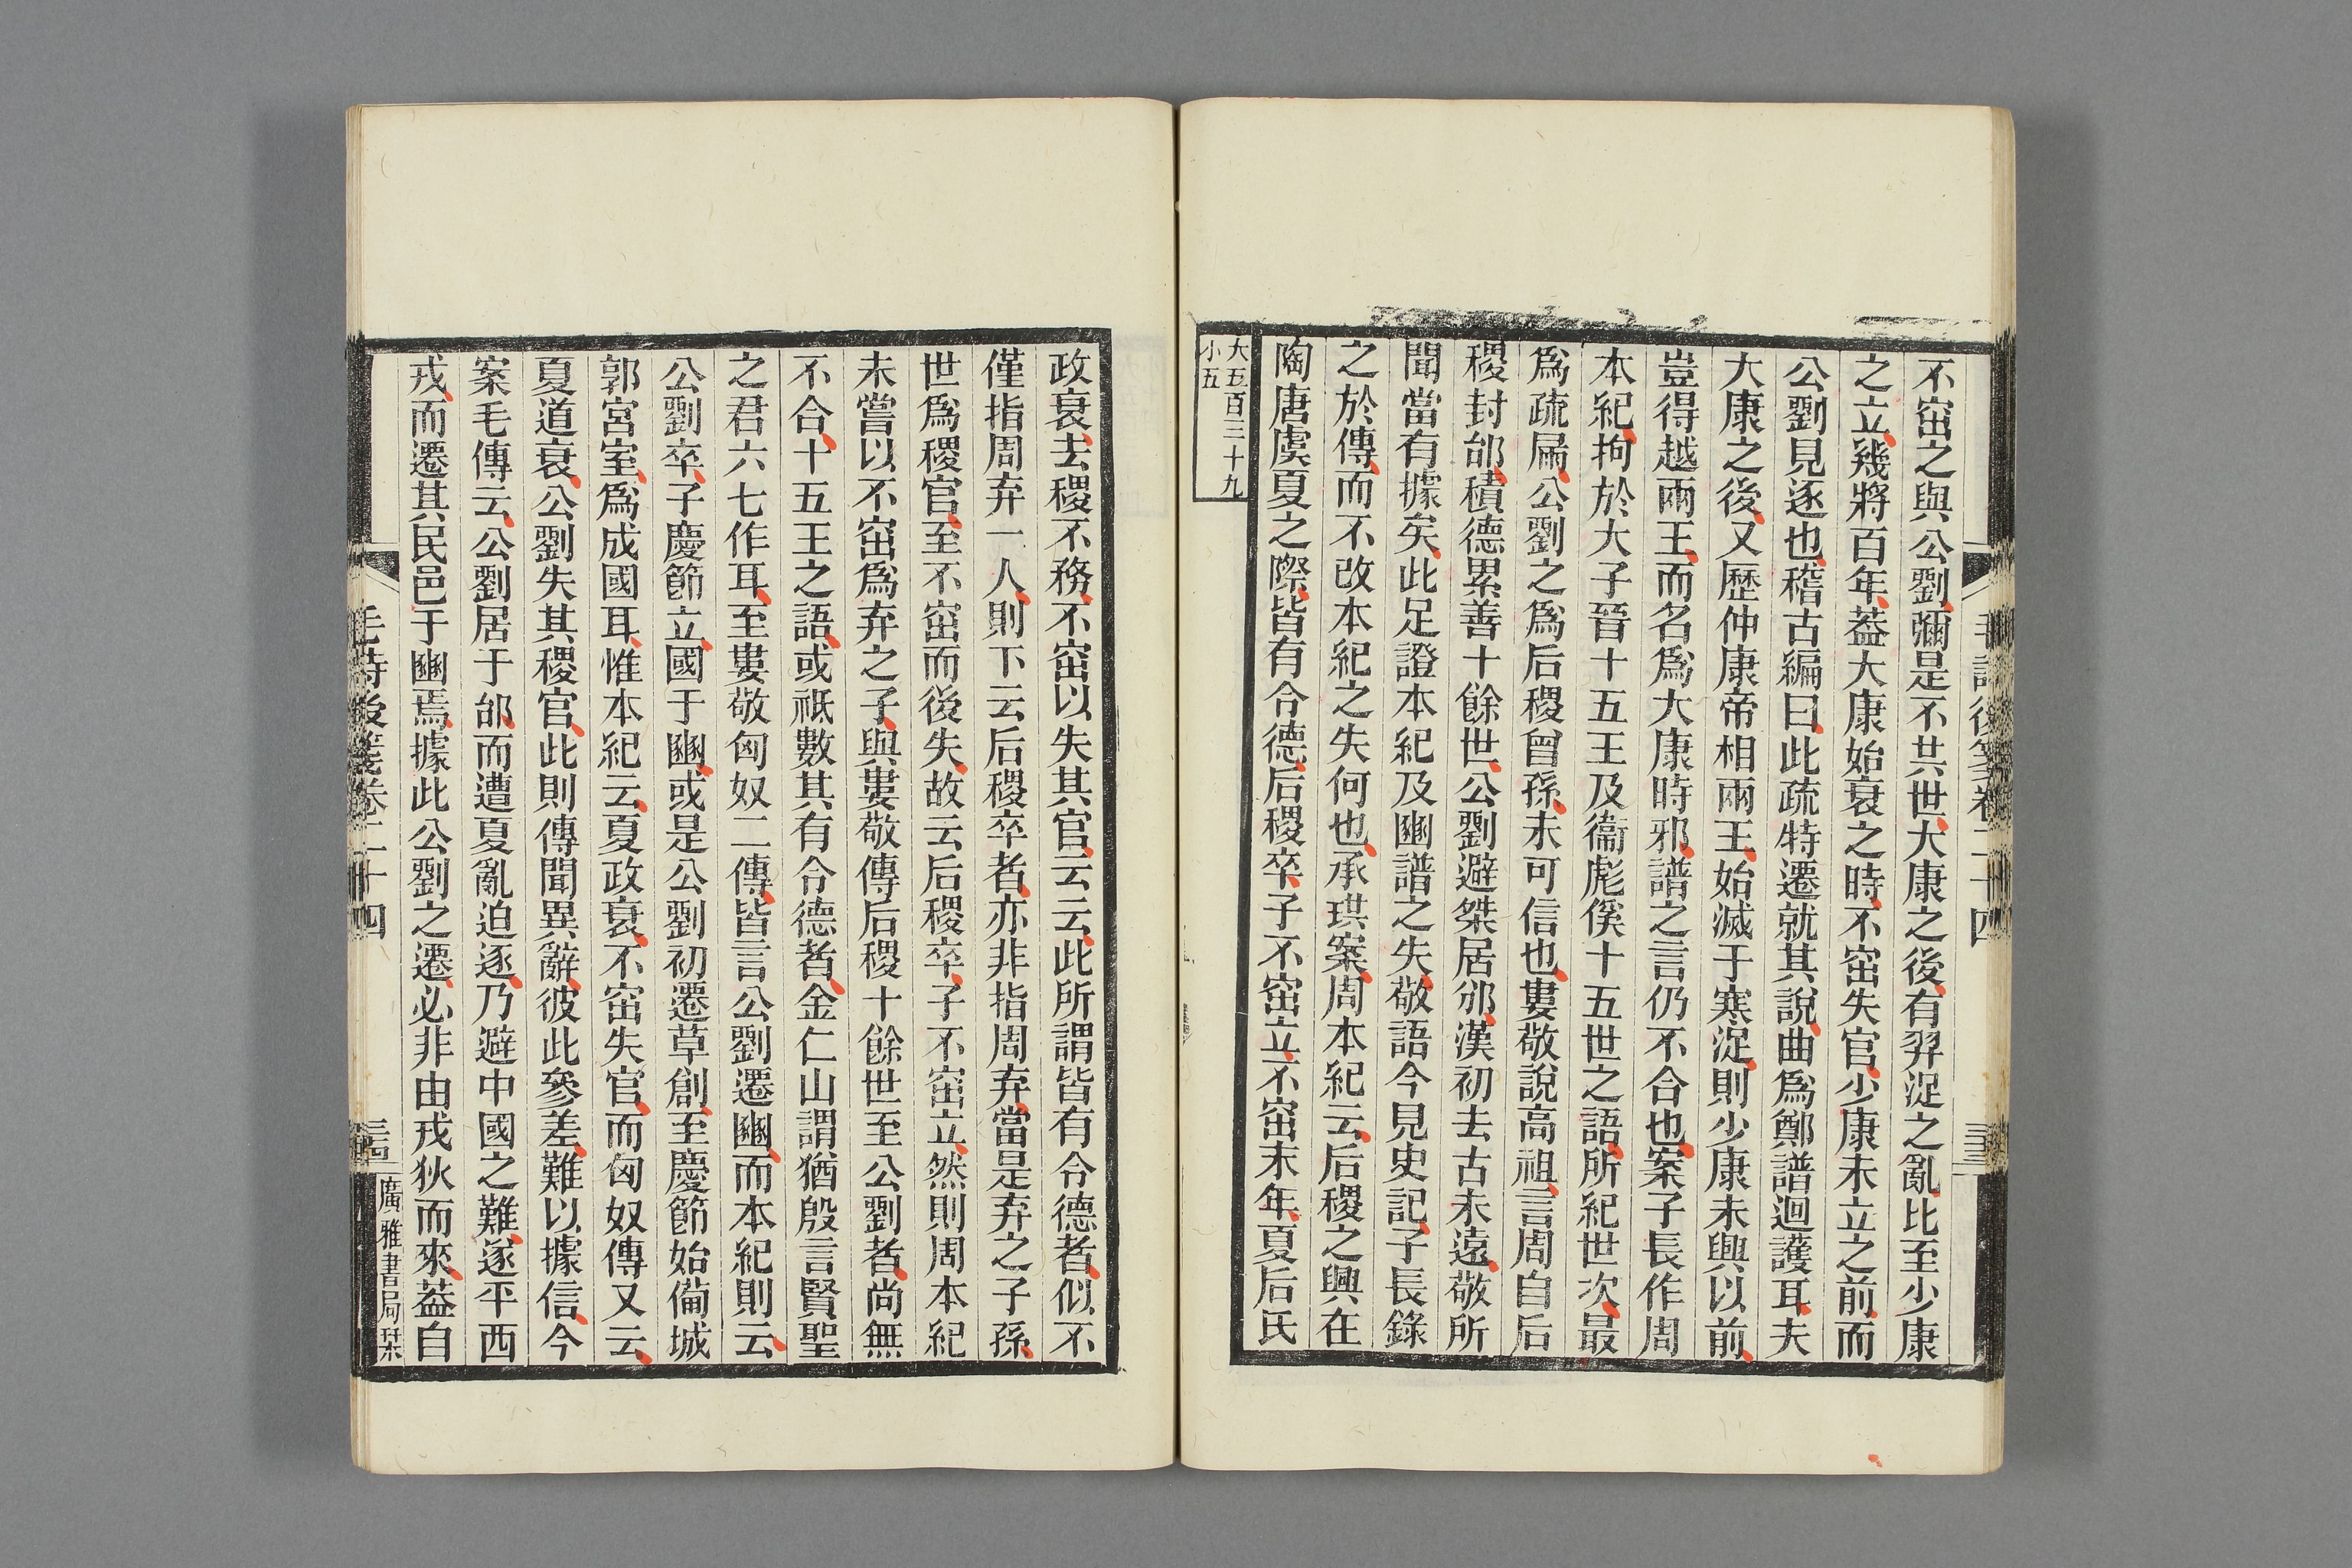 不窋之與公劉彌是不共世大康之後有羿浞之亂比至少康
之立幾將百年葢大康始衰之時不窋失官少康未立之前而
公劉見逐也稽古編曰此疏特遷就其說曲爲鄭譜迴護耳夫
大康之後又歷仲康帝相兩王始滅于寒浞則少康未興以前
豈得越兩王而名爲大康時邪譜之言仍不合也案子長作周
本紀拘於大子晉十五王及衞彪傒十五世之語所紀世次最
爲疏屚公劉之爲后稷曾孫未可信也婁敬說高祖言周自后
稷封邰積德累善十餘世公劉避桀居邠漢初去古未遠敬所
聞當有據矣此足證本紀及豳譜之失敬語今見史記子長錄
之於傳而不改本紀之失何也承珙案周本紀云后稷之興在
陶唐虞夏之際皆有令德后稷卒子不窋立不窋末年夏后氏
大五百三十九
小五
毛詩後箋卷二十四
政衰去稷不務不窋以失其官云云此所謂皆有令德者似不
僅指周弃一人則下云后稷卒者亦非指周弃當是弃之子孫
世爲稷官至不窋而後失故云后稷卒子不窋立然則周本紀
未嘗以不窋爲弃之子與婁敬傳后稷十餘世至公劉者尚無
不合十五王之語或祇數其有令德者金仁山謂猶殷言賢聖
之君六七作耳至婁敬匈奴二傳皆言公劉遷豳而本紀則云
公劉卒子慶節立國于豳或是公劉初遷草創至慶節始備城
郭宮室爲成國耳惟本紀云夏政衰不窋失官而匈奴傳又云
夏道衰公劉失其稷官此則傳聞異辭彼此參差難以據信今
案毛傳云公劉居于邰而遭夏亂迫逐乃避中國之難遂平西
戎而遷其民邑于豳焉據此公劉之遷必非由戎狄而來葢自
毛詩後箋卷二十四
廣雅書局栞